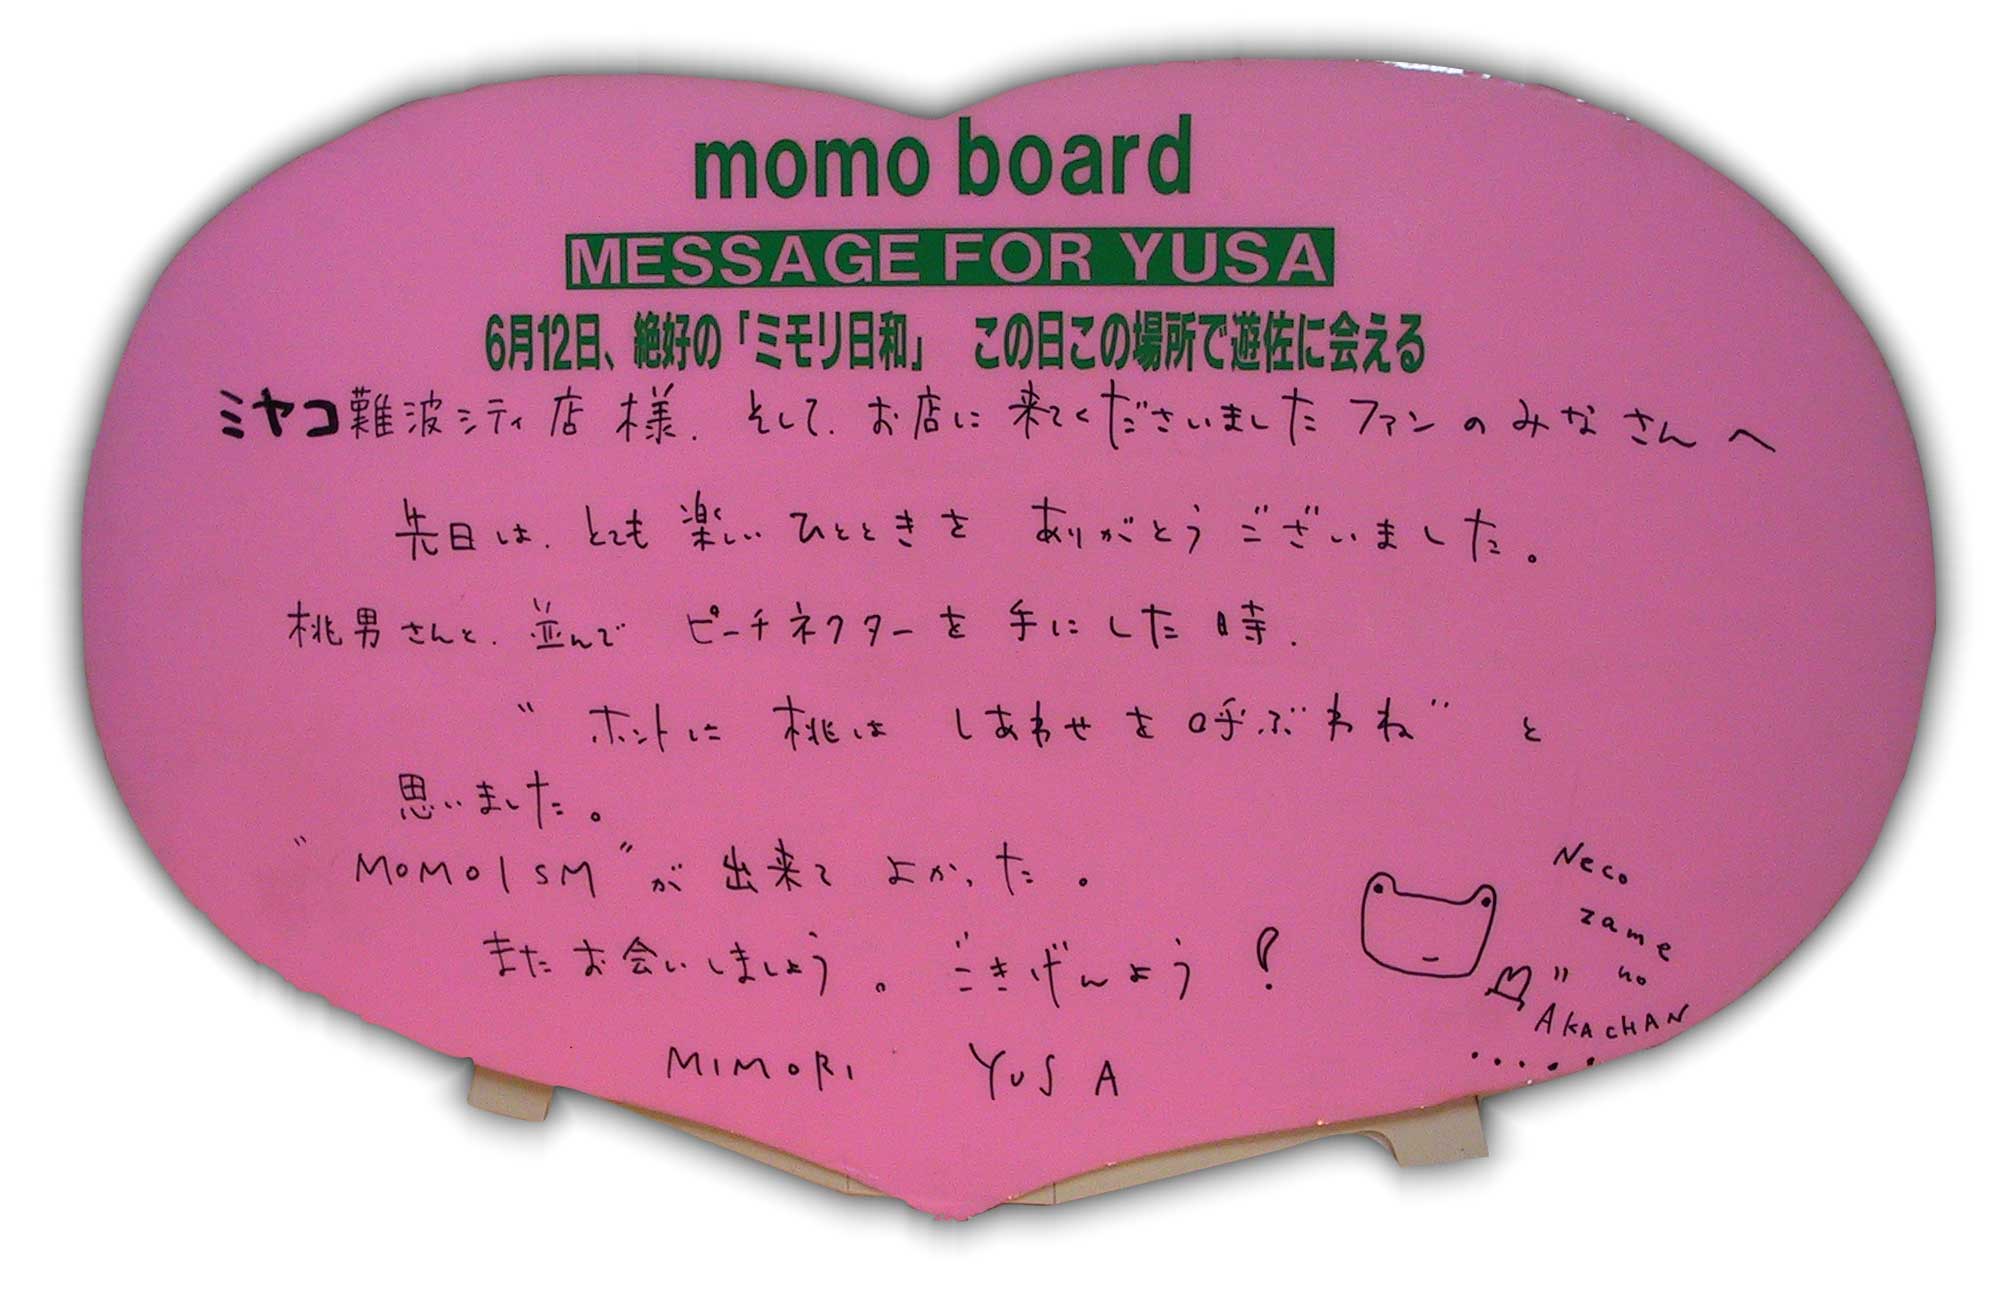 momo board
MESSAGE FOR YUSA
6月12日、絶好の「ミモリ日和」　この日この場所で遊佐に会える
ミヤコ難波シティ店 様. そして. お店に 来てくださいました ファンのみなさんへ
先日は. とても 楽しい ひとときを ありがとうございました。
桃男さんと. 並んで ピーチネクターを 手にした 時.
"ホントに 桃は しあわせを 呼ぶわね" と
思いました。
"MOMOISM"が 出来て よかった。
また お会いしましょう。 ごきげんよう!
MIMORI YUSA
Neco
zame
no
AKACHAN
.....